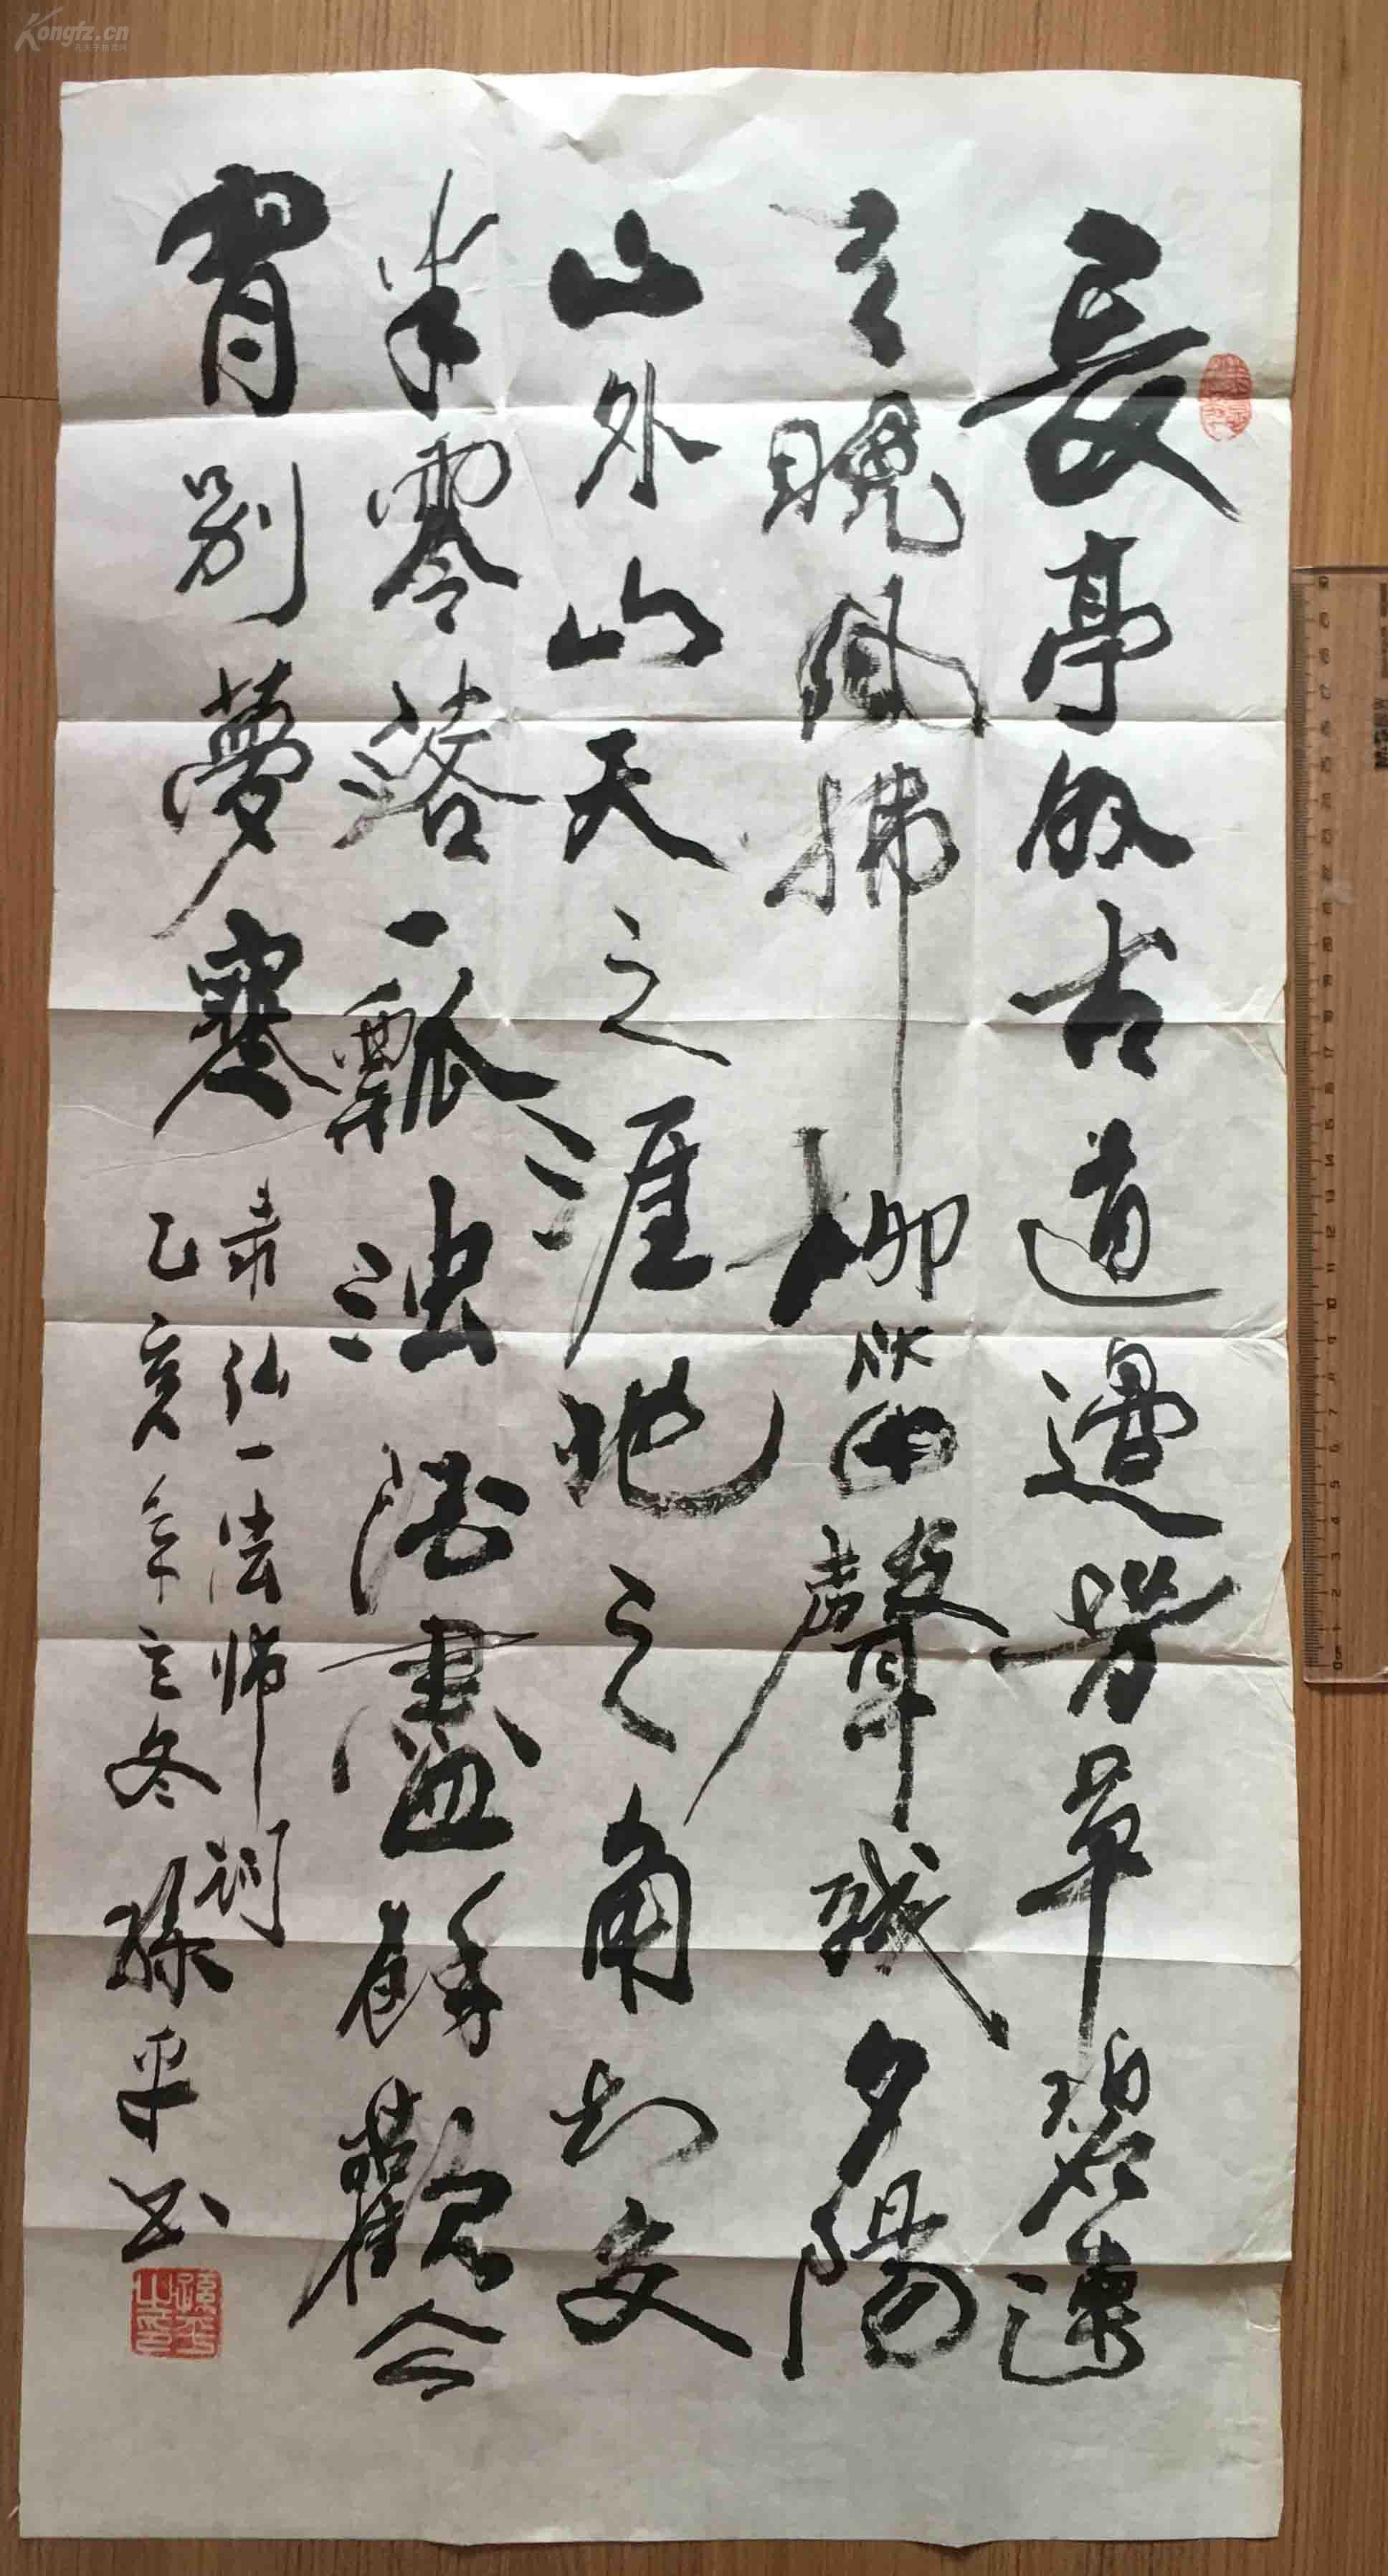 Kongfz.cn
長亭外古道邊芳草碧連
天晚風拂柳笛聲殘夕陽
山外山天之涯地之角知交
半零落一瓢浊酒盡餘歡今
宵别夢寒
录弘一法师词
乙亥年立冬孫平书
孫平之印